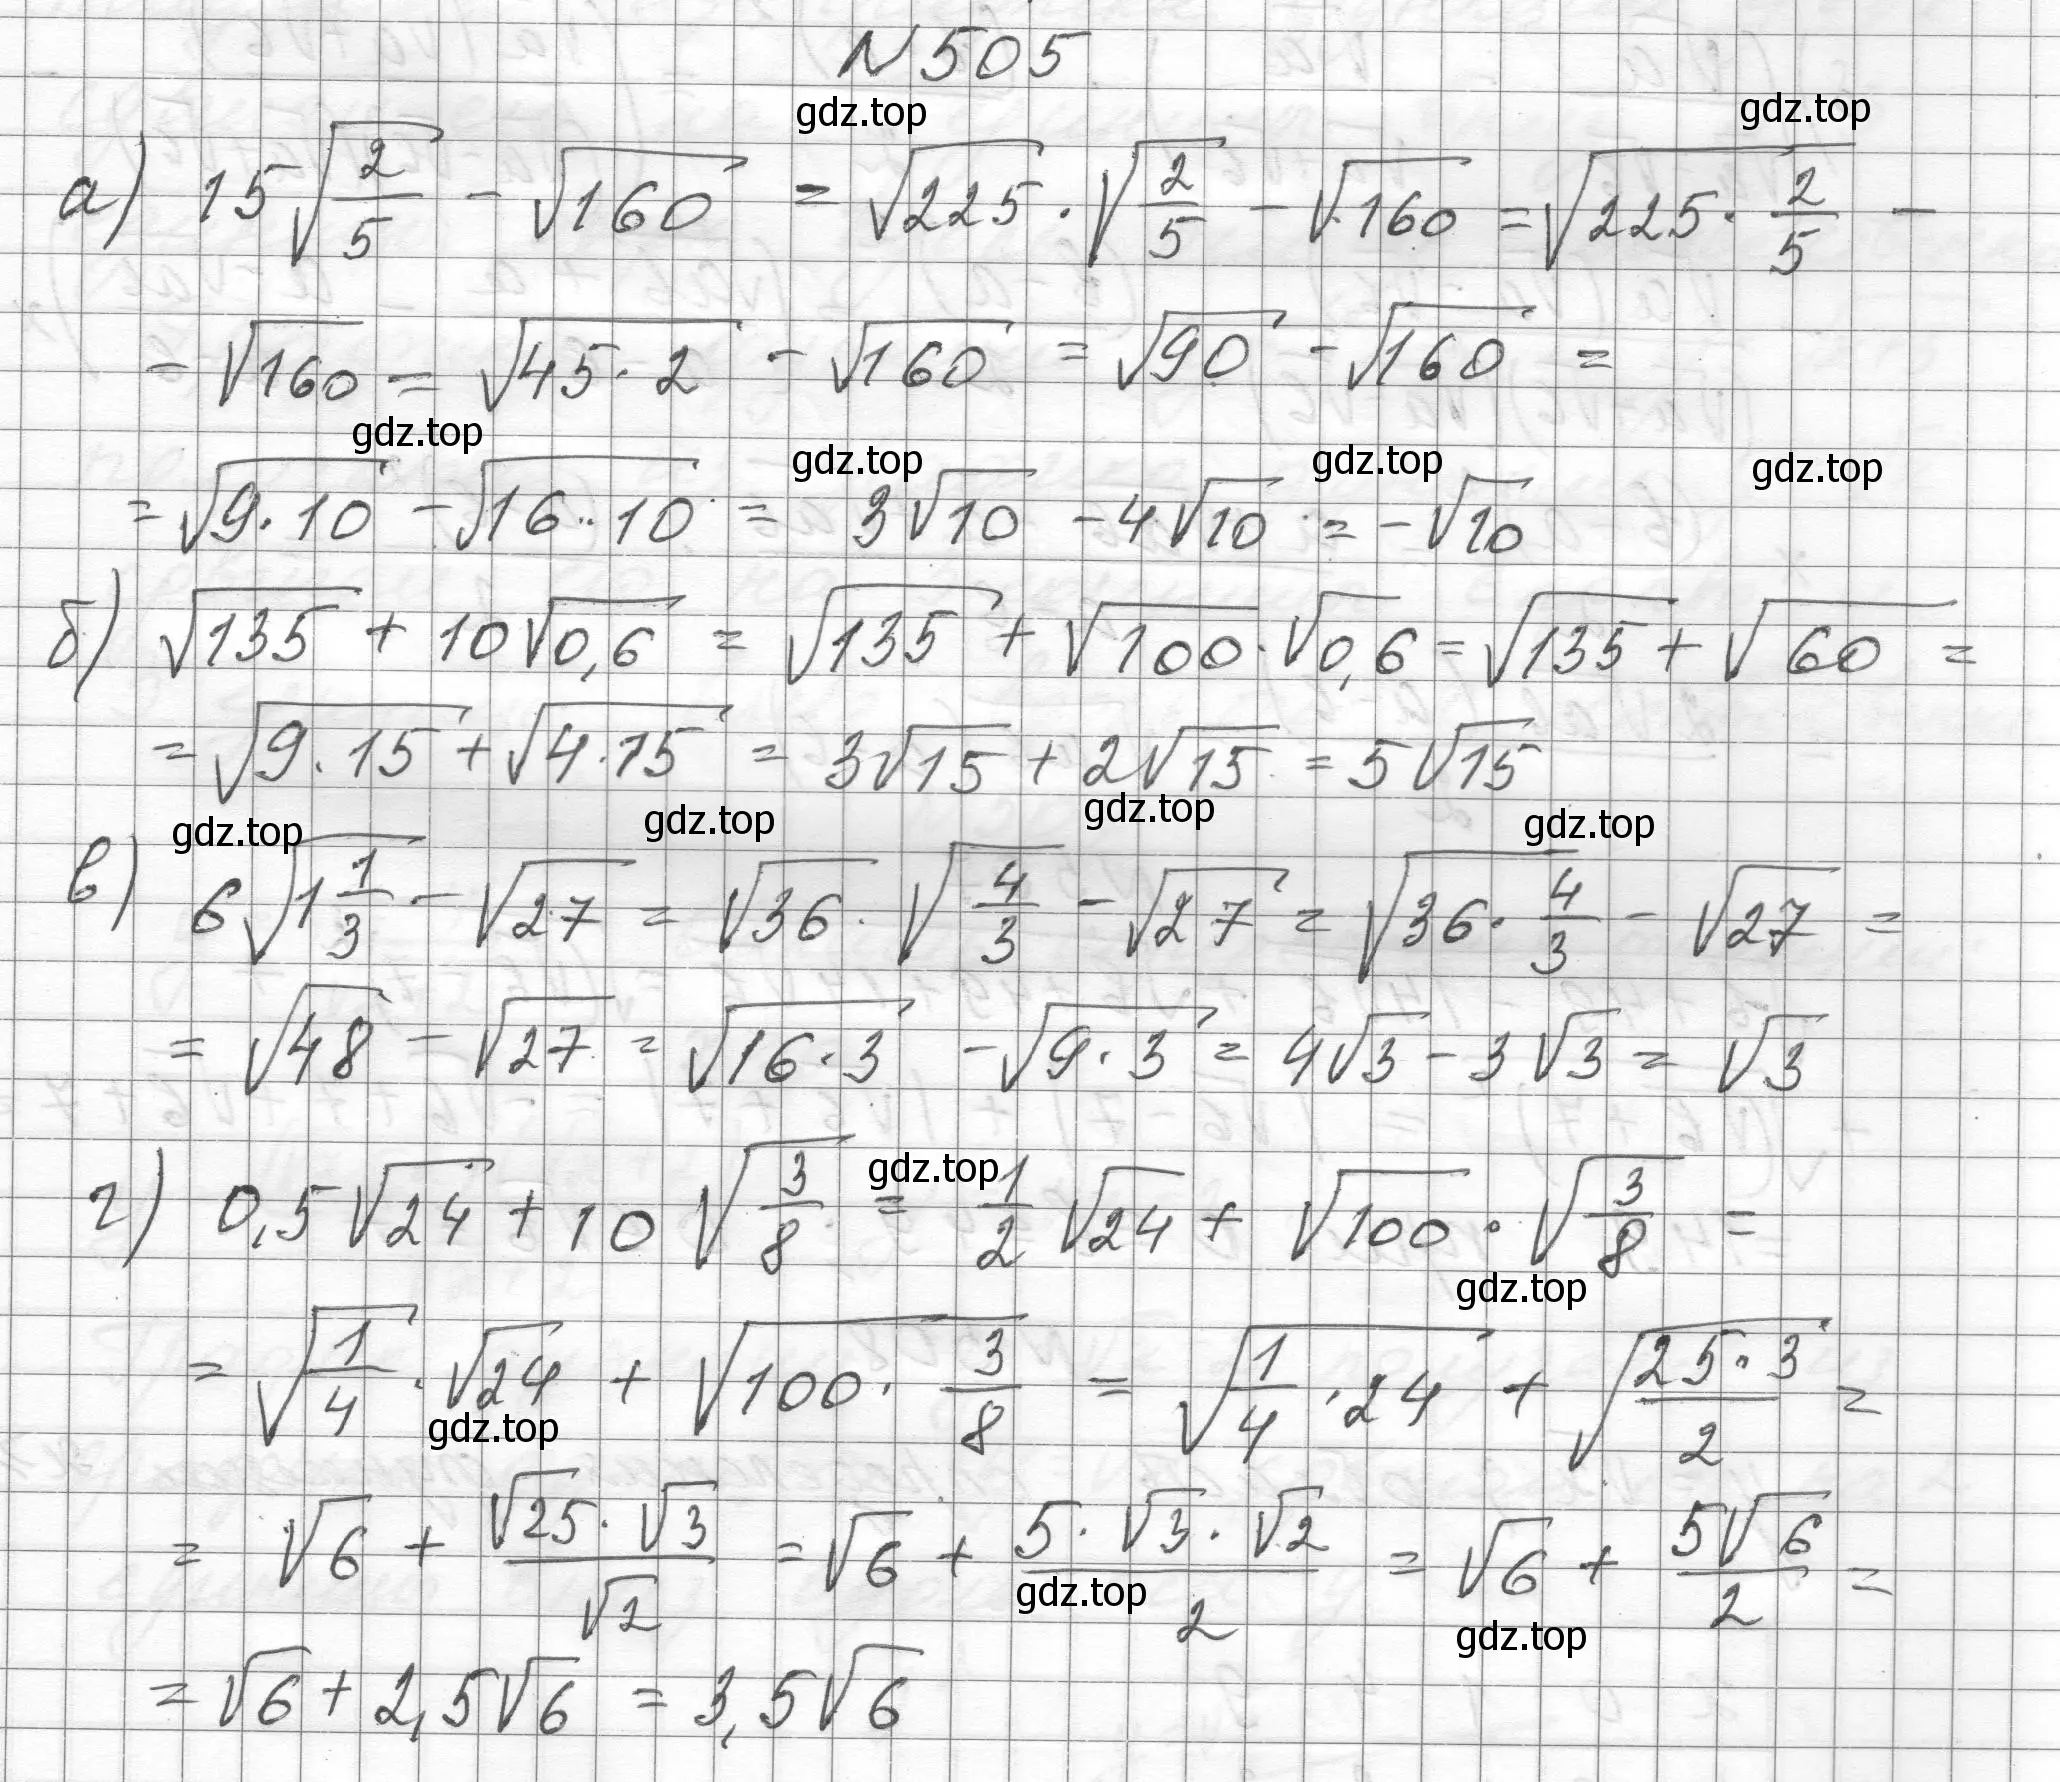 N 505
gdz.top
gdz.top
а) 15√(2/5) - √160 = √225 · √(2/5) - √160 = √(225 · 2/5) -
- √160 = √(45 · 2) - √160 = √90 - √160 =
gdz.top
gdz.top
gdz.top
gdz.top
= √(9 · 10) - √(16 · 10) = 3√10 - 4√10 = -√10
б) √135 + 10√0,6 = √135 + √100 · √0,6 = √135 + √60 =
= √(9 · 15) + √(4 · 15) = 3√15 + 2√15 = 5√15
gdz.top
gdz.top
gdz.top
gdz.top
в) 6√(1 1/3) - √27 = √36 · √(4/3) - √27 = √(36 · 4/3) - √27 =
= √48 - √27 = √(16 · 3) - √(9 · 3) = 4√3 - 3√3 = √3
gdz.top
г) 0,5√24 + 10√(3/8) = 1/2 √24 + √100 · √(3/8) =
gdz.top
= √(1/4) · √24 + √(100 · 3/8) = √(1/4 · 24) + √(25 · 3/2) =
gdz.top
= √6 + (√25 · √3)/√2 = √6 + (5 · √3 · √2)/2 = √6 + 5√6/2 =
gdz.top
gdz.top
= √6 + 2,5√6 = 3,5√6